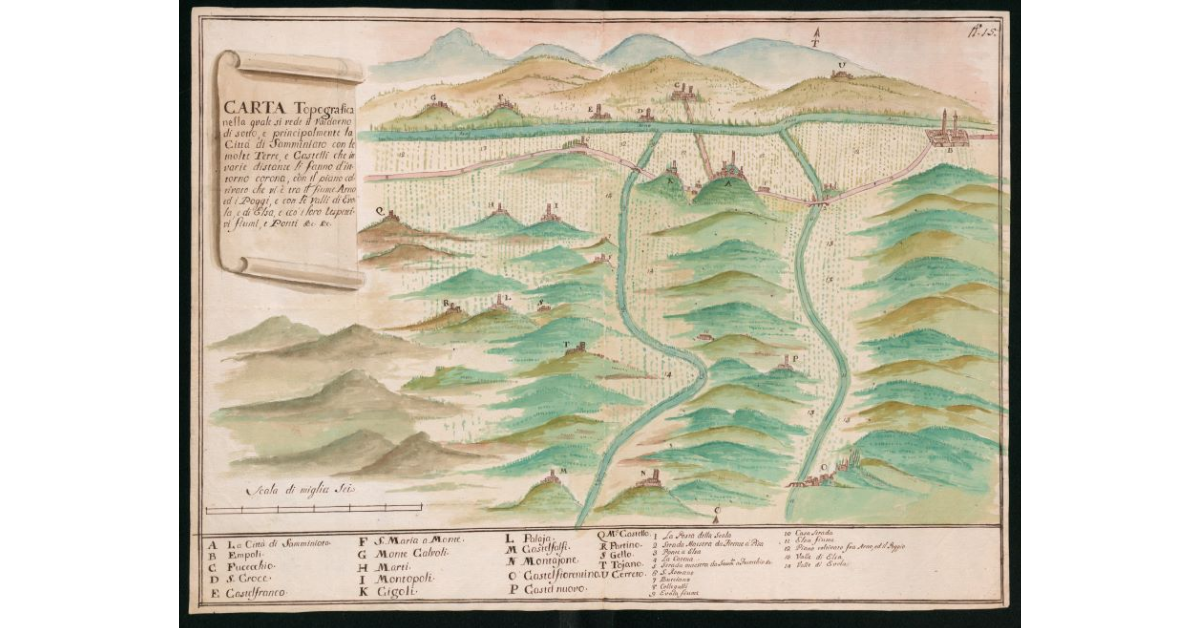 fl. 15.
CARTA Topografica
nella quale si vede il Valdarno
di sotto, e principalmente la
Città di Samminiato con le
molte Terre, e Castelli che in
varie distanze li fanno d'in-
torno corona, con il piano col-
tivato che vi è tra il fiume Arno
ed i Poggi, e con le Valli di Evo-
la, e di Elsa, e co i loro rispetti-
vi fiumi, e Ponti &c. &c.
T
U
G
F
E
D
C
B
K
A
Q
H
I
R
L
S
T
P
M
N
O
Scala di miglia Sei
A La Città di Samminiato.
B Empoli.
C Fucecchio.
D S. Croce.
E Castelfranco.
F S. Maria a Monte.
G Monte Calvoli.
H Marti.
I Montopoli.
K Cigoli.
L Palaja.
M Castelfalfi.
N Montajone.
O Castelfiorentino.
P Castel nuovo.
Q Mte Castello.
R Partino.
S Gello.
T Tojano.
U Cerreto.
1 La Posta della Scala
2 Strada Maestra da Firenze a Pisa
3 Ponte a Elsa
4 La Catena
5 Strada maestra da
6 S. Romano
8 Collegalli
9 Evola fiume
10 Casa Strada
11 Elsa fiume
12 Piano coltivato fra Arno, ed il Poggio
13 Valle di Elsa
14 Valle di Evola